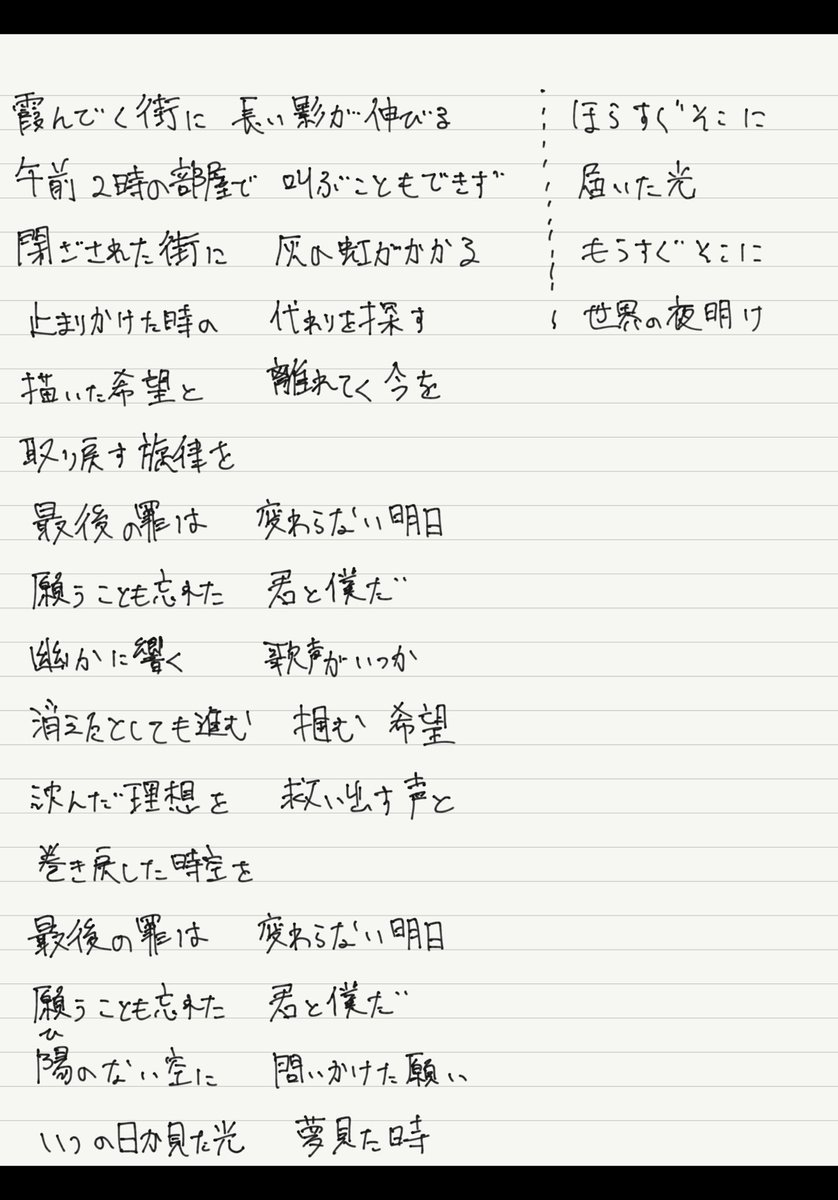 霞んでく街に 長い影が伸びる
午前2時の部屋で 叫ぶこともできず
閉ざされた街に 灰の虹がかかる
止まりかけた時の 代わりを探す
描いた希望と 離れてく今を
取り戻す旋律を
最後の罪は 変わらない明日
願うことも忘れた 君と僕だ
幽かに響く 歌声がいつか
消えたとしても進む 掴む 希望
沈んだ理想を 救い出す声と
巻き戻した時空を
最後の罪は 変わらない明日
願うことも忘れた 君と僕だ
ひ
陽のない空に 問いかけた願い
いつの日か見た光 夢見た時
ほらすぐそこに
届いた光
もうすぐそこに
世界の夜明け